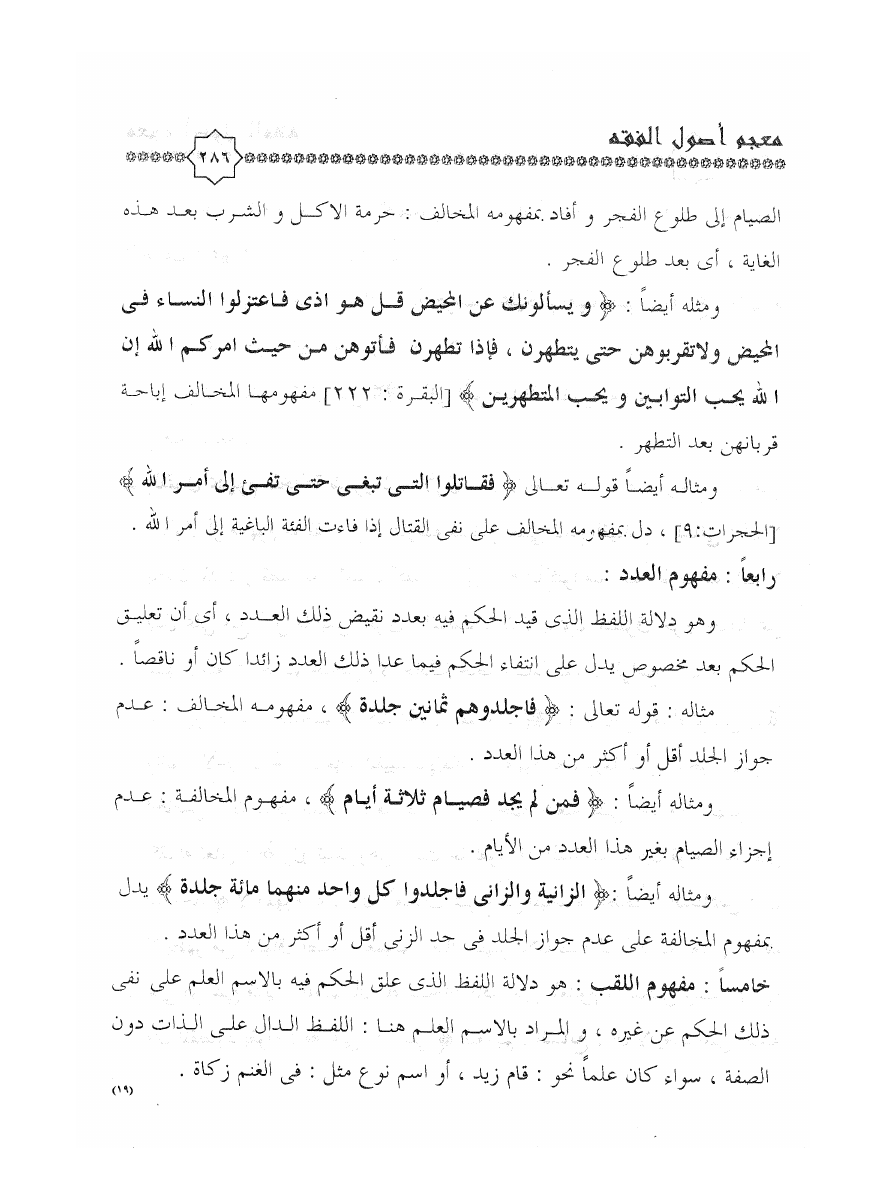 معجم أصول الفقه
٢٨٦
الصيام إلى طلوع الفجر و أفاد بمفهومه المخالف : حرمة الاكل و الشرب بعد هذه
الغاية ، أى بعد طلوع الفجر .
ومثله أيضاً : ﴿ و يسألونك عن المحيض قل هو اذى فاعتزلوا النساء فى
المحيض ولاتقربوهن حتى يتطهرن ، فإذا تطهرن فأتوهن من حيث امركم الله إن
الله يحب التوابين و يحب المتطهرين ﴾ [البقرة : ٢٢٢] مفهومها المخالف إباحة
قربانهن بعد التطهر .
ومثاله أيضاً قوله تعالى ﴿ فقاتلوا التى تبغى حتى تفئ إلى أمر الله ﴾
[الحجرات:٩] ، دل بمفهومه المخالف على نفى القتال إذا فاءت الفئة الباغية إلى أمر الله .
رابعاً : مفهوم العدد :
وهو دلالة اللفظ الذى قيد الحكم فيه بعدد نقيض ذلك العدد ، أى أن تعليق
الحكم بعد مخصوص يدل على انتفاء الحكم فيما عدا ذلك العدد زائدا كان أو ناقصاً .
مثاله : قوله تعالى : ﴿ فاجلدوهم ثمانين جلدة ﴾ ، مفهومه المخالف : عدم
جواز الجلد أقل أو أكثر من هذا العدد .
ومثاله أيضاً : ﴿ فمن لم يجد فصيام ثلاثة أيام ﴾ ، مفهوم المخالفة : عدم
إجزاء الصيام بغير هذا العدد من الأيام .
ومثاله أيضاً :﴿ الزانية والزانى فاجلدوا كل واحد منهما مائة جلدة ﴾ يدل
بمفهوم المخالفة على عدم جواز الجلد فى حد الزنى أقل أو أكثر من هذا العدد .
خامساً : مفهوم اللقب : هو دلالة اللفظ الذى علق الحكم فيه بالاسم العلم على نفى
ذلك الحكم عن غيره ، و المراد بالاسم العلم هنا : اللفظ الدال على الذات دون
الصفة ، سواء كان علماً نحو : قام زيد ، أو اسم نوع مثل : فى الغنم زكاة .
(١٩)